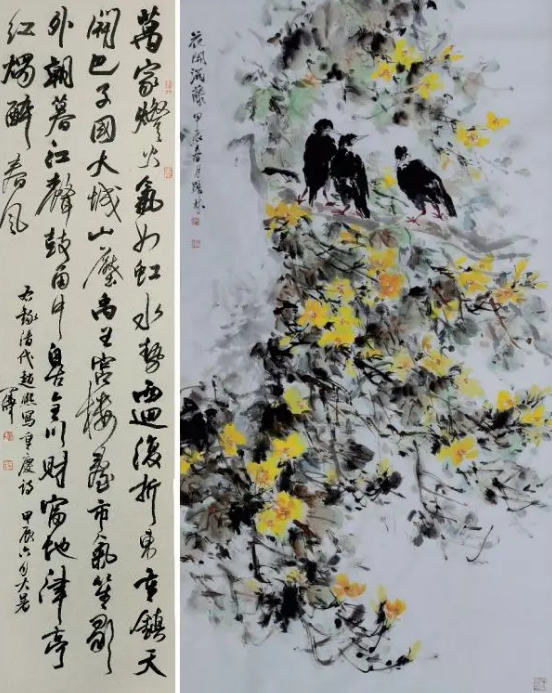 萬家燈火氣如虹水勢西迴復折東重鎮天
開巴子國大城山壓禹王宮樓臺市氣笙歌
外朝暮江聲鼓角中自古全川財富地津亭
紅燭醉春風
右錄清代趙熙寫重慶詩 甲辰六月大暑
花風滿藤 甲辰春月